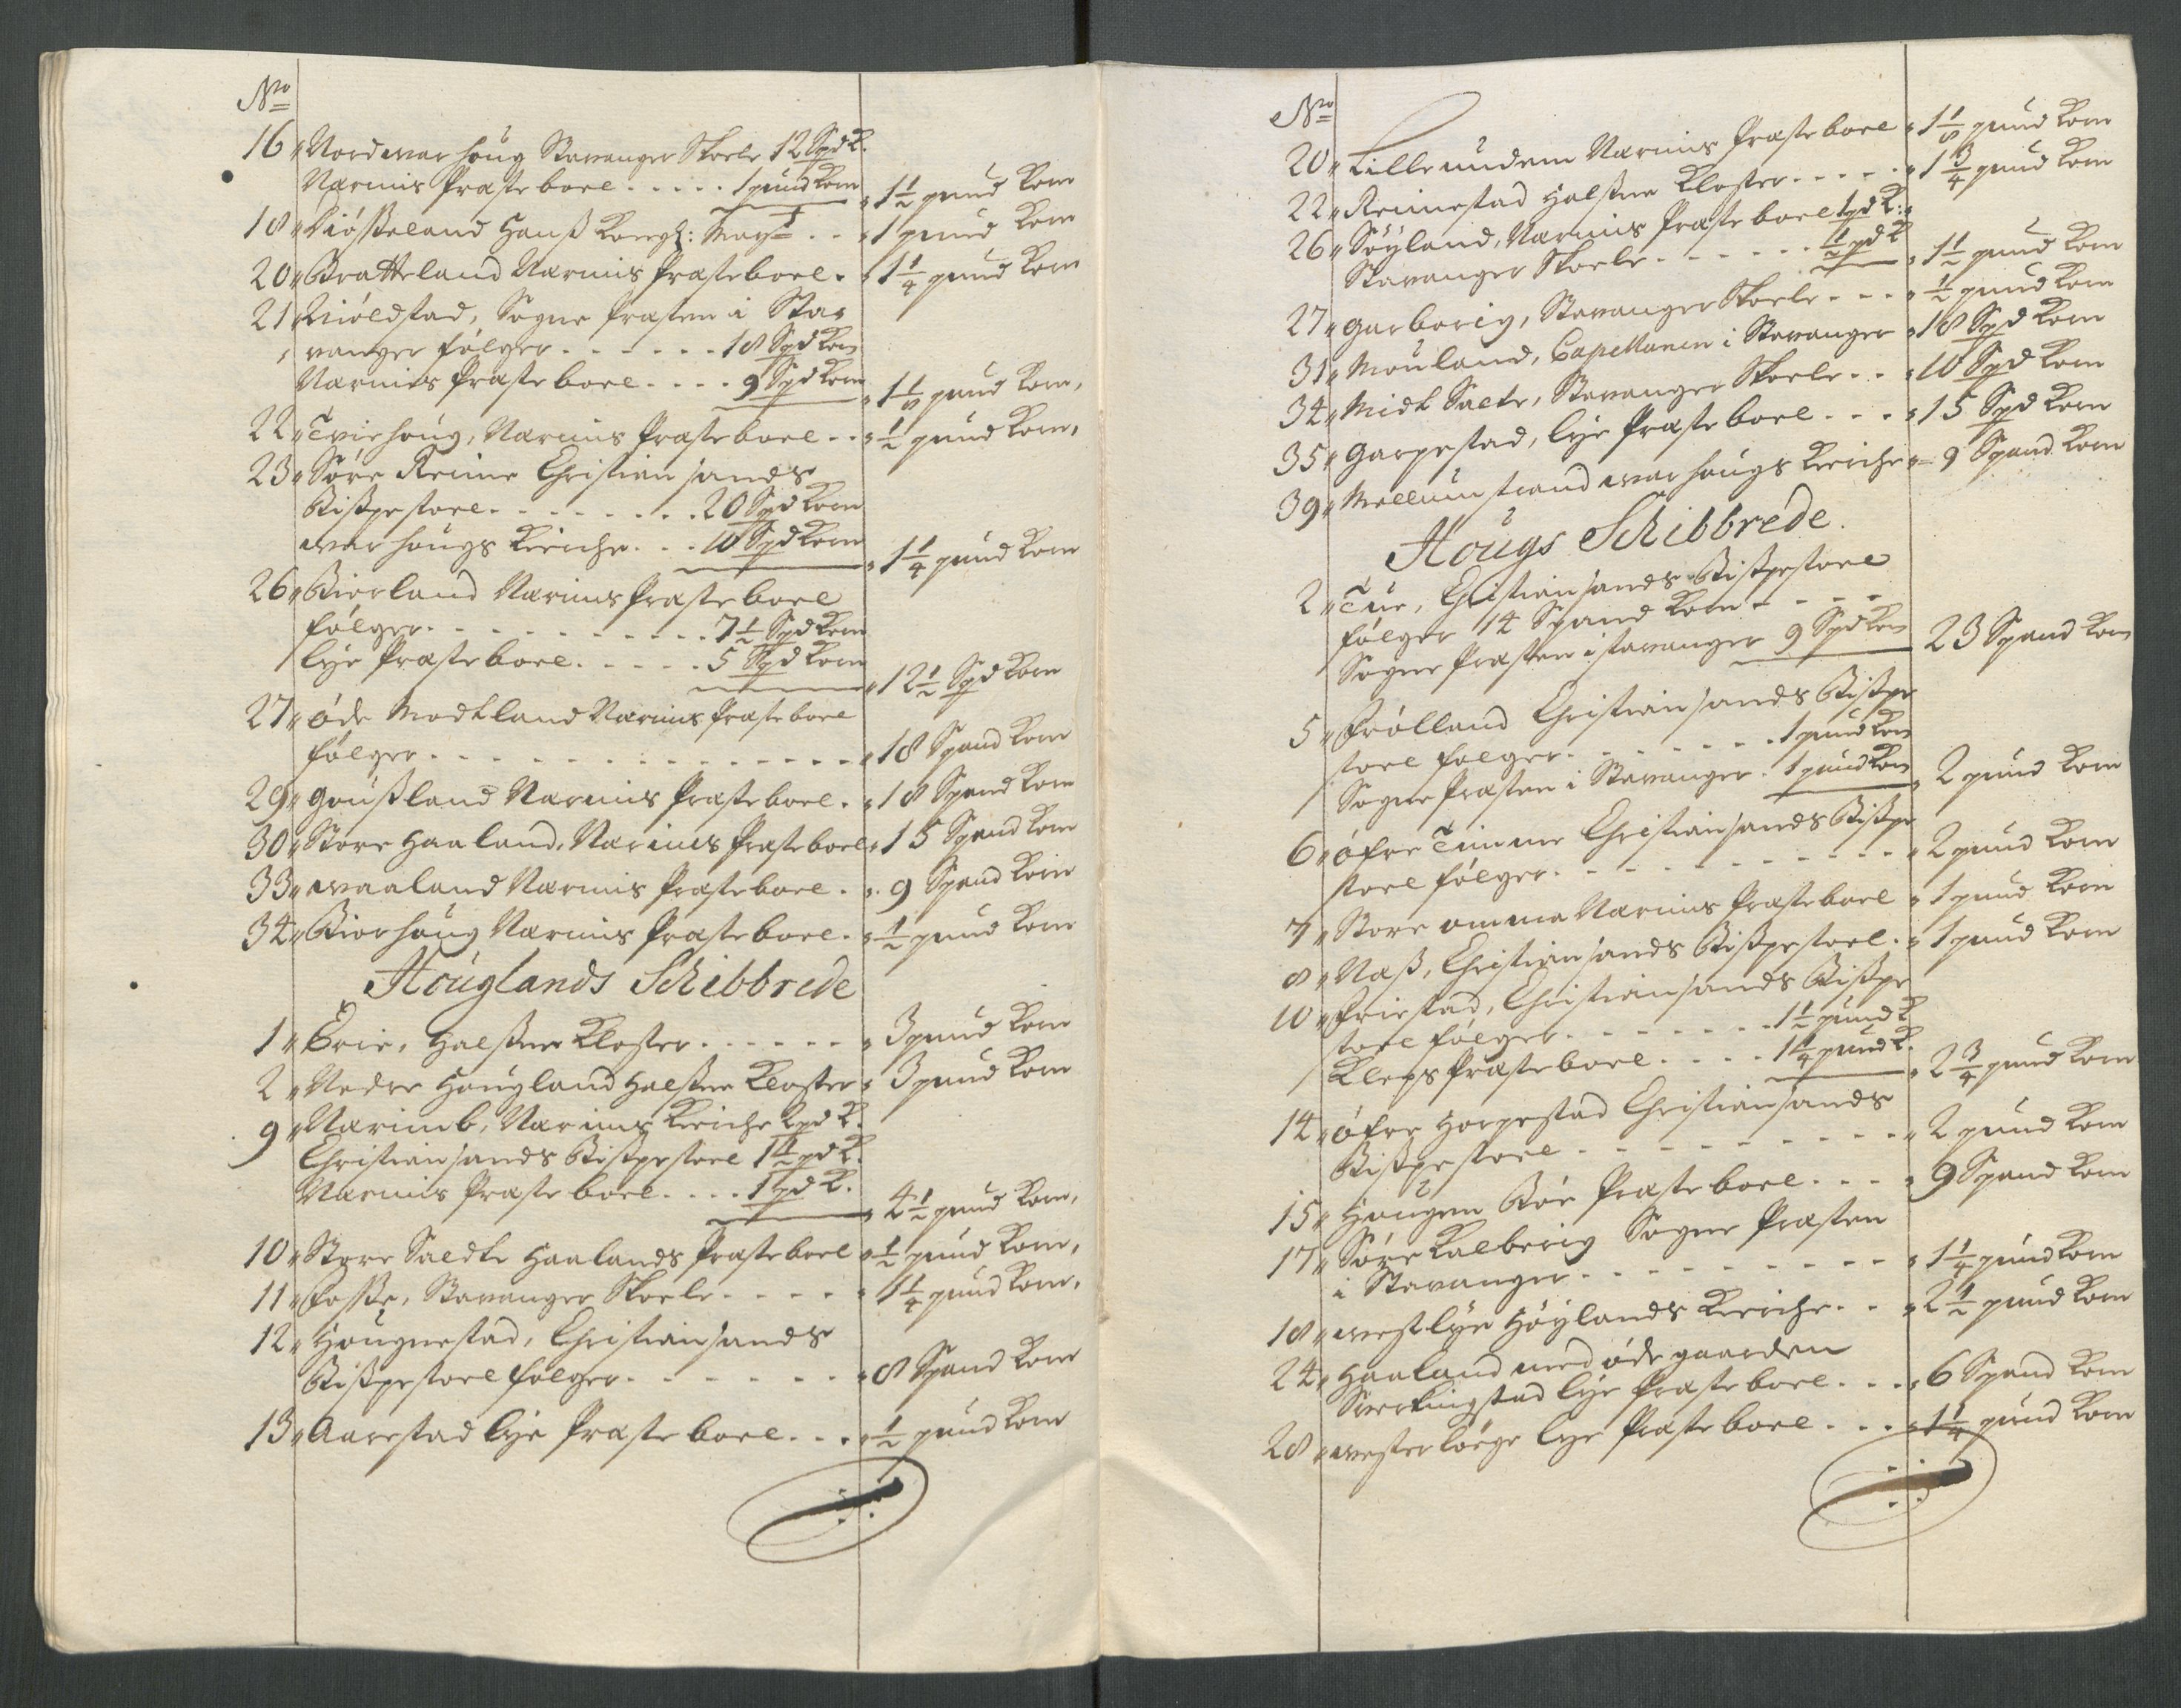 No
16 " Nordwarhoug Stavanger Skoele 12 Spd K.
Nærims Præste boel . . . . . 1 pund Korn " 1½ pund Korn
18 " Kiøsseland Hans Kongl: Mayt . . " 1 pund Korn
20 " Bratteland Nærims Præsteboel . " 1¼ pund Korn
21 " Niøldstad, Sogne Præsten i Sta-
vanger følger . . . . . . 18 Spd Korn
Nærims Præsteboel . . . . 9 Spd Korn " 1⅛ pund Korn,
22 " Tviehoug, Nærims Præsteboel . . " ½ pund Korn,
23 " Søre Reime Christiansands
Bispestoel . . . . . . . . 20 Spd Korn
warhougs Kirche . . . 10 Spd Korn " 1¼ pund Korn
26 " Bierland Nærims Præsteboel
følger . . . . . . . . . . 7½ Spd Korn
lye Præsteboel . . . . . 5 Spd Korn " 12½ Spd Korn
27 " øde Modland Nærims Præsteboel
følger . . . . . . . . . . . . . " 18 Spand Korn
29 " Gousland Nærims Præsteboel . " 18 Spand Korn
30 " Store Haaland, Nærims Præsteboel " 15 Spand Korn
33 " waaland Nærims Præsteboel . " 9 Spand Korn
34 " Biorhoug Nærims Præsteboel . " ½ pund Korn
Houglands Schibbrede
1 " Erie, Halsne Kloster . . . . . . " 3 pund Korn
2 " Nedre Hougland Halsne Kloster " 3 pund Korn
9 " Nærimb, Nærims Kirche 2 pd K.
Christiansands Bispestoel 1½ pd K.
Nærims Præsteboel . . . . 1 pd K. " 4½ pund Korn,
10 " Store Saelde Haalands Præsteboel " ½ pund Korn,
11 " Fosse, Stavanger Skoele . . . . " 1¼ pund Korn.
12 " Hougnestad, Christiansands
Bispestoel følger . . . . . . " 8 Spand Korn
13 " Aarestad lye Præsteboel . . . " ½ pund Korn
No
20 " Lille undem Nærims Præsteboel " 1⅛ pund Korn
22 " Reimestad Halsne Kloster . . . . . " 1¾ pund Korn
26 " Søyland, Nærims Præsteboel 1 pd K: "
Stavanger Skoele . . . . . . ½ pd K " 1½ pund Korn
27 " Garborig, Stavanger Skoele . . . " ½ pund Korn
31 " Mouland, Capellanen i Stavanger " 18 Spd Korn
34 " Midt Saete, Stavanger Skoele . . " 10 Spd Korn
35 " Garpestad, lye Præsteboel . . . " 15 Spd Korn
39 " Mellumstrand warhougs Kirche " 9 Spand Korn
Hougs Schibbrede.
2 " Tue, Christiansands Bispestoel
følger 14 Spand Korn . . . .
Sogne Præsten i stavanger 9 Spd Korn 23 Spand Korn
5 " Frølland Christiansands Bispe
stoel følger . . . . . . . . 1 pund Korn
Sogne Præsten i Stavanger . 1 pund Korn " 2 pund Korn
6 " øfre Timme Christiansands Bispe
stoel følger . . . . . . . . . . " 2 pund Korn
7 " Store omma Nærims Præsteboel " 1 pund Korn
8 " Næss, Christiansands Bispestoel . " 1 pund Korn
10 " Friestad, Christiansands Bispe
stoel følger . . . . . . . 1½ pund K
Kleps Præsteboel . . . . 1¼ pund K. " 2¾ pund Korn
14 " øfre Horpestad Christiansands
Bispestoel . . . . . . . . . . " 2 pund Korn
15 " Hougen Bøe Præsteboel . . . " 9 Spand Korn
17 " Søre Kalberig Sogne Præsten
i Stavanger . . . . . . . . . " 1¼ pund Korn
18 " westlye Høylands Kirche . . " 2½ pund Korn
24 " Haaland med øde gaarden
Snerlingstad lye Præsteboel . . . " 6 Spand Korn
28 " wester løege lye Præsteboel . . . " 1¼ pund Korn